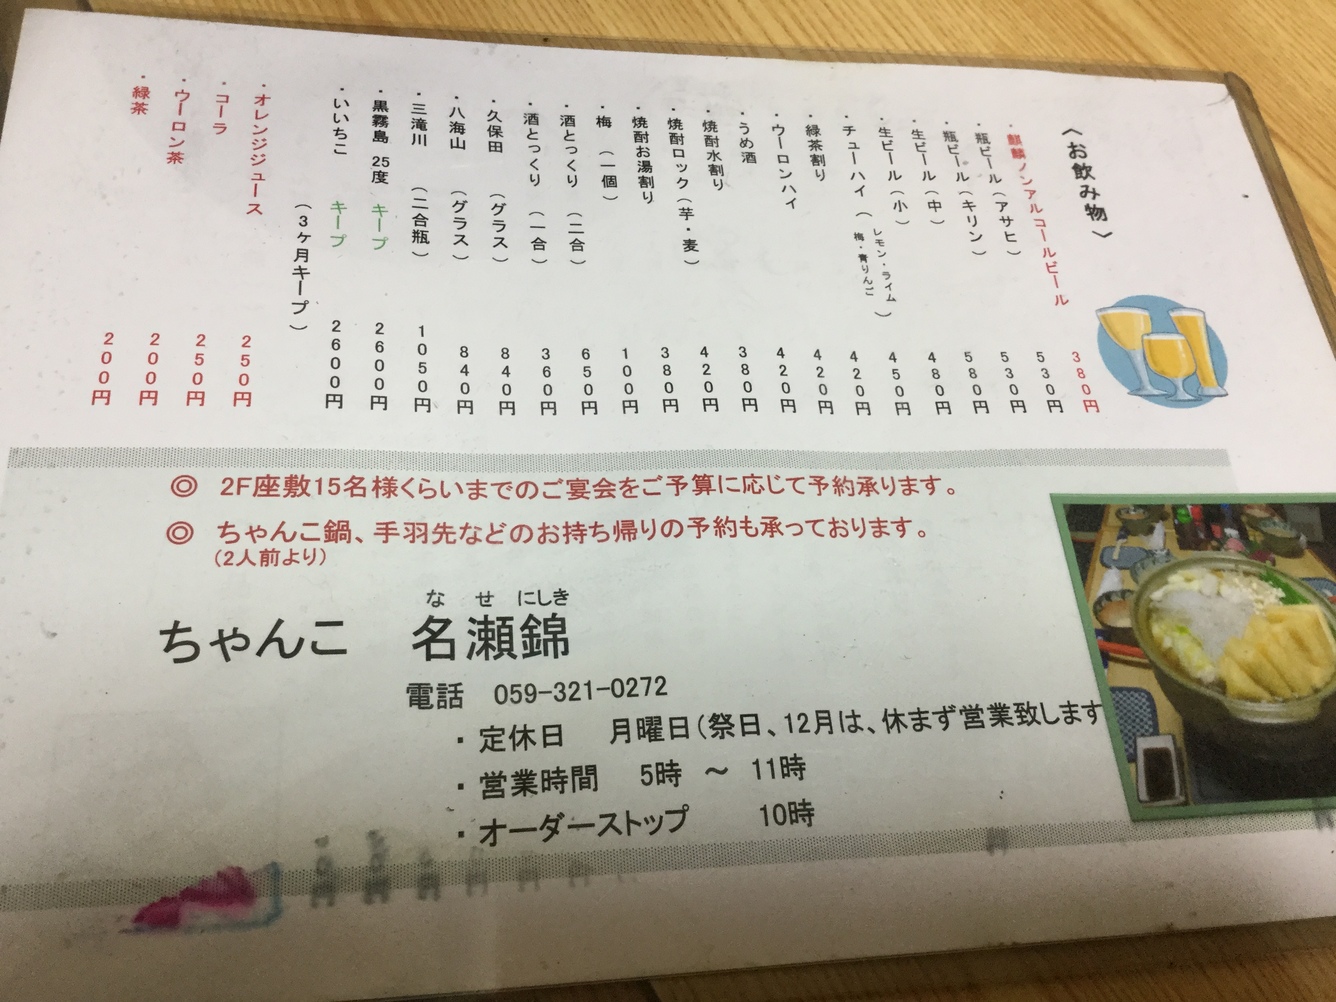 〈お飲み物〉
・麒麟ノンアルコールビール 380円
・瓶ビール(アサヒ) 530円
・瓶ビール(キリン) 530円
・生ビール(中) 580円
・生ビール(小) 480円
・チューハイ(レモン・ライム 梅・青りんご) 450円
・緑茶割り 420円
・ウーロンハイ 420円
・うめ酒 420円
・焼酎水割り 380円
・焼酎ロック(芋・麦) 420円
・焼酎お湯割り 380円
・梅 (一個) 100円
・酒とっくり (二合) 650円
・酒とっくり (一合) 360円
・久保田 (グラス) 840円
・八海山 (グラス) 840円
・三滝川 (二合瓶) 1050円
・黒霧島 25度 キープ 2600円
・いいちこ キープ 2600円
(3ヶ月キープ)
・オレンジジュース 250円
・コーラ 250円
・ウーロン茶 200円
・緑茶 200円
◎ 2F座敷15名様くらいまでのご宴会をご予算に応じて予約承ります。
◎ ちゃんこ鍋、手羽先などのお持ち帰りの予約も承っております。
(2人前より)
な せ にしき
ちゃんこ 名瀬錦
電話 059-321-0272
・定休日 月曜日(祭日、12月は、休まず営業致します
・営業時間 5時 ～ 11時
・オーダーストップ 10時